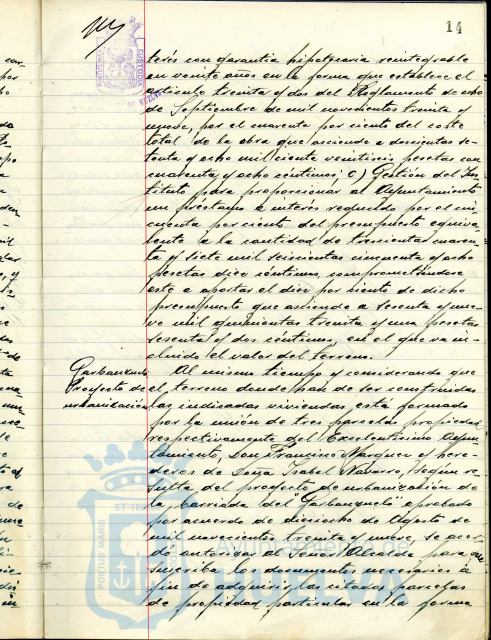 14
terés con garantía hipotecaria reintegrable
en veinte años en la forma que establece el
artículo treinta y dos del Reglamento de ocho
de Septiembre de mil novecientos treinta y
nueve, por el cuarenta por ciento del coste
total de la obra que asciende a doscientas se-
tenta y ocho mil ciento veintiseis pesetas con
cuarenta y ocho céntimos; c) Gestión del Ins-
tituto para proporcionar al Ayuntamiento
un préstamo a interés reducido por el cin-
cuenta por ciento del presupuesto equiva-
lente a la cantidad de trescientas cuaren-
ta y siete mil seiscientas cincuenta y ocho
pesetas diez céntimos, comprometiéndose
este a aportar el diez por ciento de dicho
presupuesto que asciende a sesenta y nue-
ve mil quinientas treinta y una pesetas
sesenta y dos céntimos, en el que va in-
cluido el valor del terreno.
Garbanzuelo
Proyecto de
urbanización
Al mismo tiempo y considerando que
el terreno donde han de ser construidas
las indicadas viviendas, está formado
por la unión de tres parcelas propiedad
respectivamente del Excelentísimo Ayun-
tamiento, Don Francisco Marquez y here-
deros de Doña Isabel Navarro, según re-
sulta del proyecto de urbanización de
la barriada del "Garbanzuelo" aprobado
por acuerdo de dieciocho de Agosto de
mil novecientos treinta y nueve, se acor-
dó autorizar al Señor Alcalde para que
suscriba los documentos necesarios a
fin de adquirir las citadas parcelas
de propiedad particular en la forma
Ayuntamiento de
HUELVA
PORTUS MARIS
ET TE